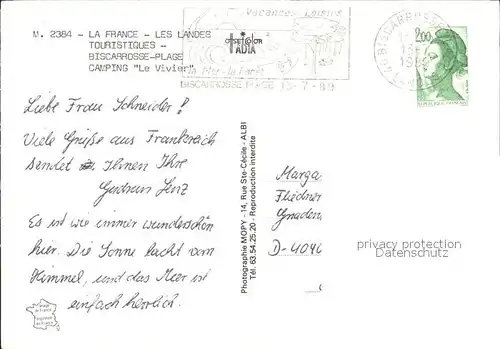 M. 2384 - LA FRANCE - LES LANDES
TOURISTIQUES -
BISCARROSSE-PLAGE
CAMPING "Le Vivier"
Vacances Loisirs
offset color
IATIA
la Mer - la Forêt
BISCARROSSE PLAGE 13-7-89
40 BISCARROSSE
2,00
Liebe Frau Schneider!
Viele Grüße aus Frankreich
sendet Ihnen Ihre
Gudrun Lenz
Es ist wie immer wunderschön
hier. Die Sonne lacht vom
Himmel, und das Meer ist
einfach herrlich.
Photographie MOPY - 14, Rue Ste-Cécile - ALBI
Tél. 63.54.25.20 - Reproduction interdite
Marga
Fliedner
Gnaden
D-404
privacy protection
Datenschutz